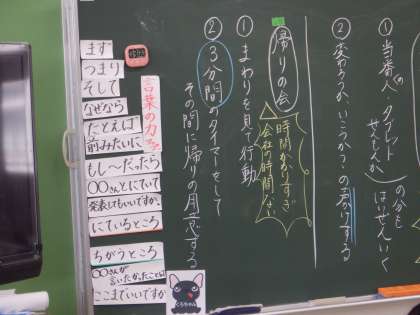 ①当番
の分も
はいぜんいく
②変ろうか・いこうか?の声かけする
帰りの会
時間かかりすぎ
会社の時間ない
①まわりを見て行動
②3分間のタイマーをして
その間に帰りの用意する
言葉の力
まず
つまり
そして
なぜなら
たとえば
前みたいに
もし〜だったら
〇〇さんとにていて
発表してもいいですか。
にているところ
ちがうところ
〇〇さんが
言いたかったことは
ここまでいいですか